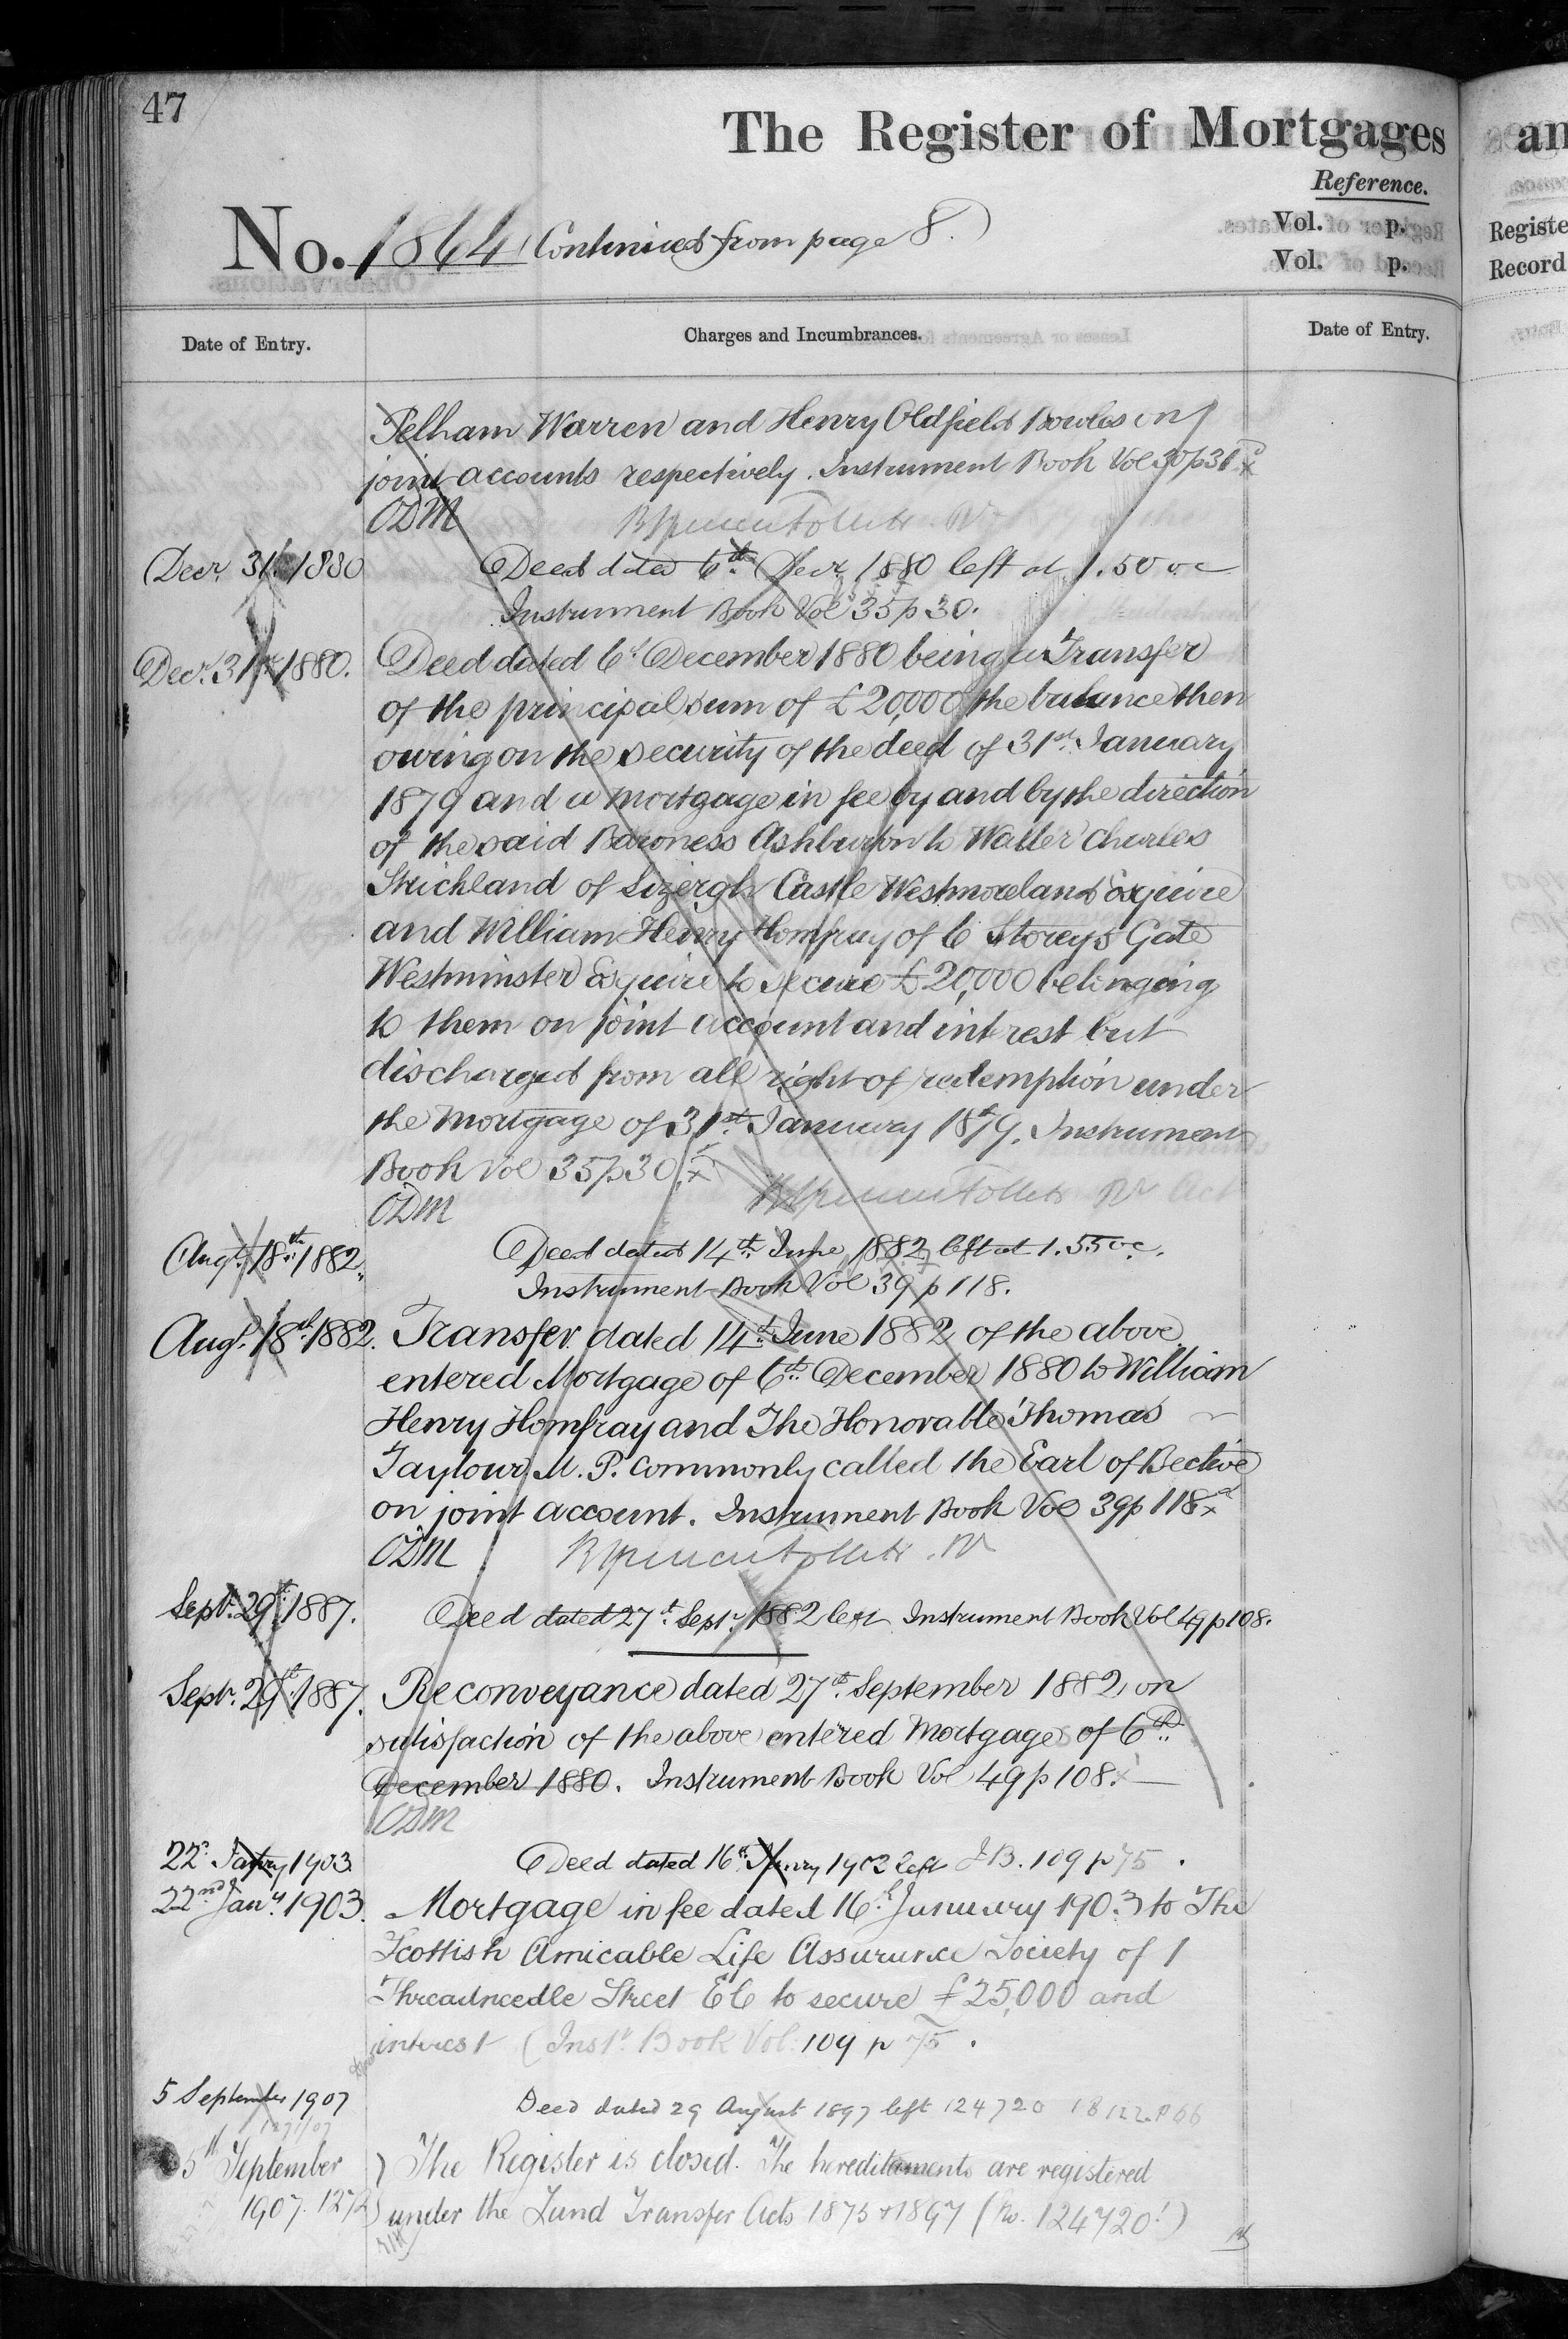 47
The Register of Mortgages
Reference.
No. 1864 (Continued from page 8.)
Vol. p.
Vol. p.
Date of Entry.
Charges and Incumbrances.
Date of Entry.
an
Registe
Record
Pelham Warren and Henry Oldfield Bowles on
joint accounts respectively. Instrument Book Vol 30 p 31
ODM
Decr. 31st 1880
Deed dated 6th Decr. 1880 left at 1.50 oc
Instrument Book Vol 35 p 30.
Decr. 31st 1880.
Deed dated 6th December 1880 being a Transfer
of the principal sum of £20,000 the balance then
owing on the security of the deed of 31st January
1879 and a mortgage in fee by and by the direction
of the said Baroness Ashburton to Walter Charles
Strickland of Sizergh Castle Westmoreland Esquire
and William Henry Homfray of 6 Storeys Gate
Westminster Esquire to secure £20,000 belonging
to them on joint account and interest but
discharged from all right of redemption under
the Mortgage of 31st January 1879. Instrument
Book Vol 35 p 30. x
ODM
Augt. 18th 1882.
Deed dated 14th June 1882 left at 1.55 oc.
Instrument Book Vol 39 p 118.
Augt. 18th 1882.
Transfer dated 14th June 1882 of the above
entered Mortgage of 6th December 1880 to William
Henry Homfray and The Honorable Thomas
Taylour M. P. commonly called the Earl of Bective
on joint account. Instrument Book Vol 39 p 118 x
ODM
Septr. 29th 1887.
Deed dated 27th Septr. 1882 left Instrument Book Vol 49 p 108.
Septr. 29th 1887.
Reconveyance dated 27th September 1882, on
satisfaction of the above entered Mortgage of 6th
December 1880. Instrument Book Vol 49 p 108. x
ODM
22d January 1903
Deed dated 16th January 1903 left I B. 109 p 75.
22nd Jany. 1903.
Mortgage in fee dated 16th January 1903 to The
Scottish Amicable Life Assurance Society of 1
Threadneedle Street EC to secure £25,000 and
interest (Inst. Book Vol. 109 p 75.
5 September 1907
Deed dated 29 August 1897 left 124720 IB 122. P 66
5th September
The Register is closed. The hereditaments are registered
1907.
under the Land Transfer Acts 1875 & 1897 (No. 124720)